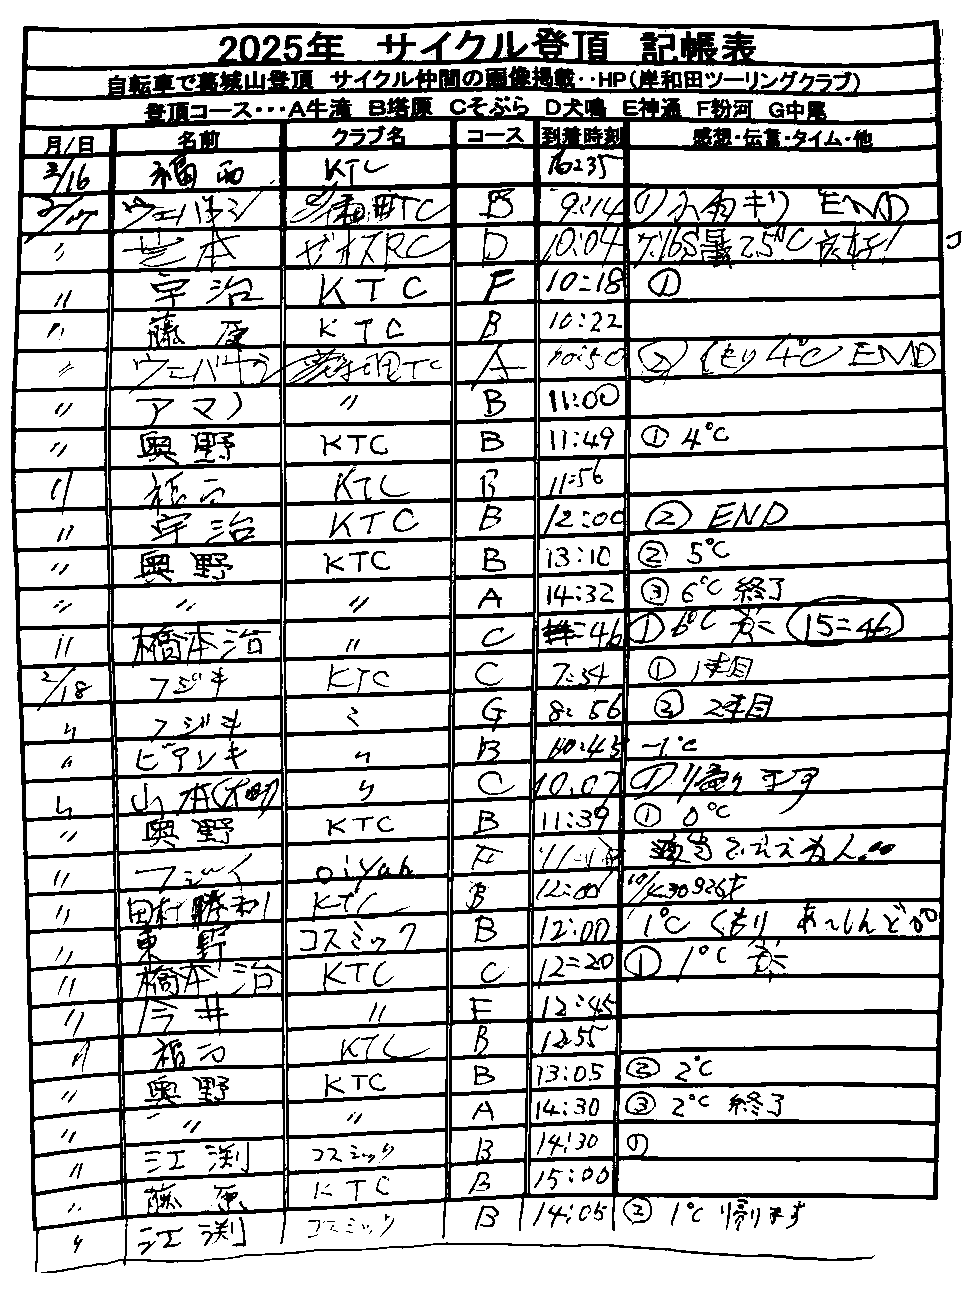 2025年 サイクル登頂 記帳表
自転車で葛城山登頂 サイクル仲間の画像掲載‥HP(岸和田ツーリングクラブ)
登頂コース･･･A牛滝 B塔原 Cそぶら D犬鳴 E神通 F粉河 G中尾
月/日 名前 クラブ名 コース 到着時刻 感想・伝言・タイム・他
2/16 福西 KTC
2/17 B 9:14 END
〃 芝本 D 10:04
〃 宇治 KTC F 10:18 ①
〃 藤原 KTC B 10:22
〃 A 10:50 ② くもり 4℃ END
〃 アマノ 〃 B 11:00
〃 奥野 KTC B 11:49 ① 4℃
〃 福西 KTC B 11:56
〃 宇治 KTC B 12:00 ② END
〃 奥野 KTC B 13:10 ② 5℃
〃 〃 〃 A 14:32 ③ 6℃ 終了
〃 橋本治 〃 C ① 6℃ 15=46
2/18 フジキ KTC C 7:54 ① 1本目
〃 フジキ 〃 G 8:56 ② 2本目
〃 ビアンキ 〃 B 10:45 -1℃
〃 山本 〃 C 10.07 ① 帰ります
〃 奥野 KTC B 11:39 ① 0℃
〃 oiyan F
〃 田村勝和 KTC B 12:00
〃 東野 コスミック B 12:00 1℃ くもり あ〜しんどかっ
〃 橋本治 KTC C 12=20 ① 1℃
〃 今井 〃 E 12:45
〃 福西 KTC B 12:55
〃 奥野 KTC B 13:05 ② 2℃
〃 〃 〃 A 14:30 ③ 2℃ 終了
〃 江渕 コスミック B 14:30 ①
〃 藤原 KTC B 15:00
〃 江渕 コスミック B 14:05 ② 1℃ 帰ります